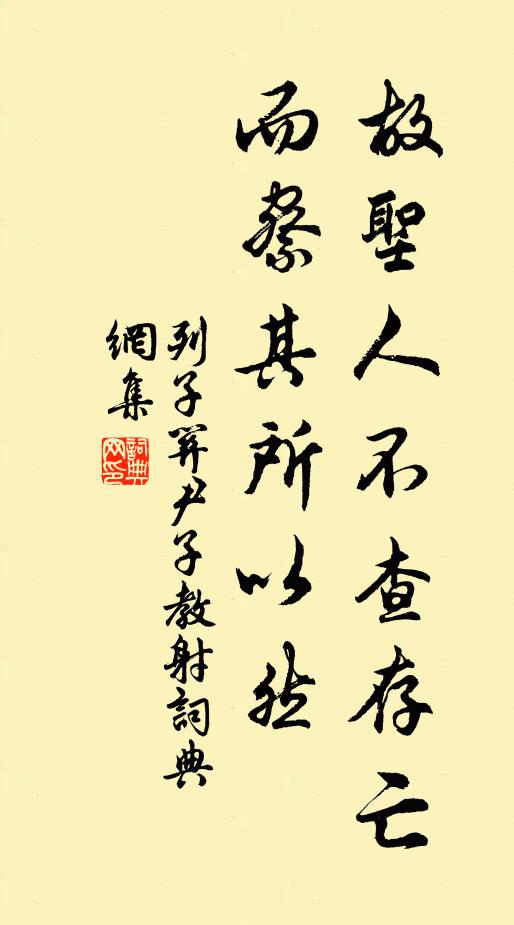 故聖人不查存亡
而察其所以然
列子關尹子教射詞典
網集
詞典網印